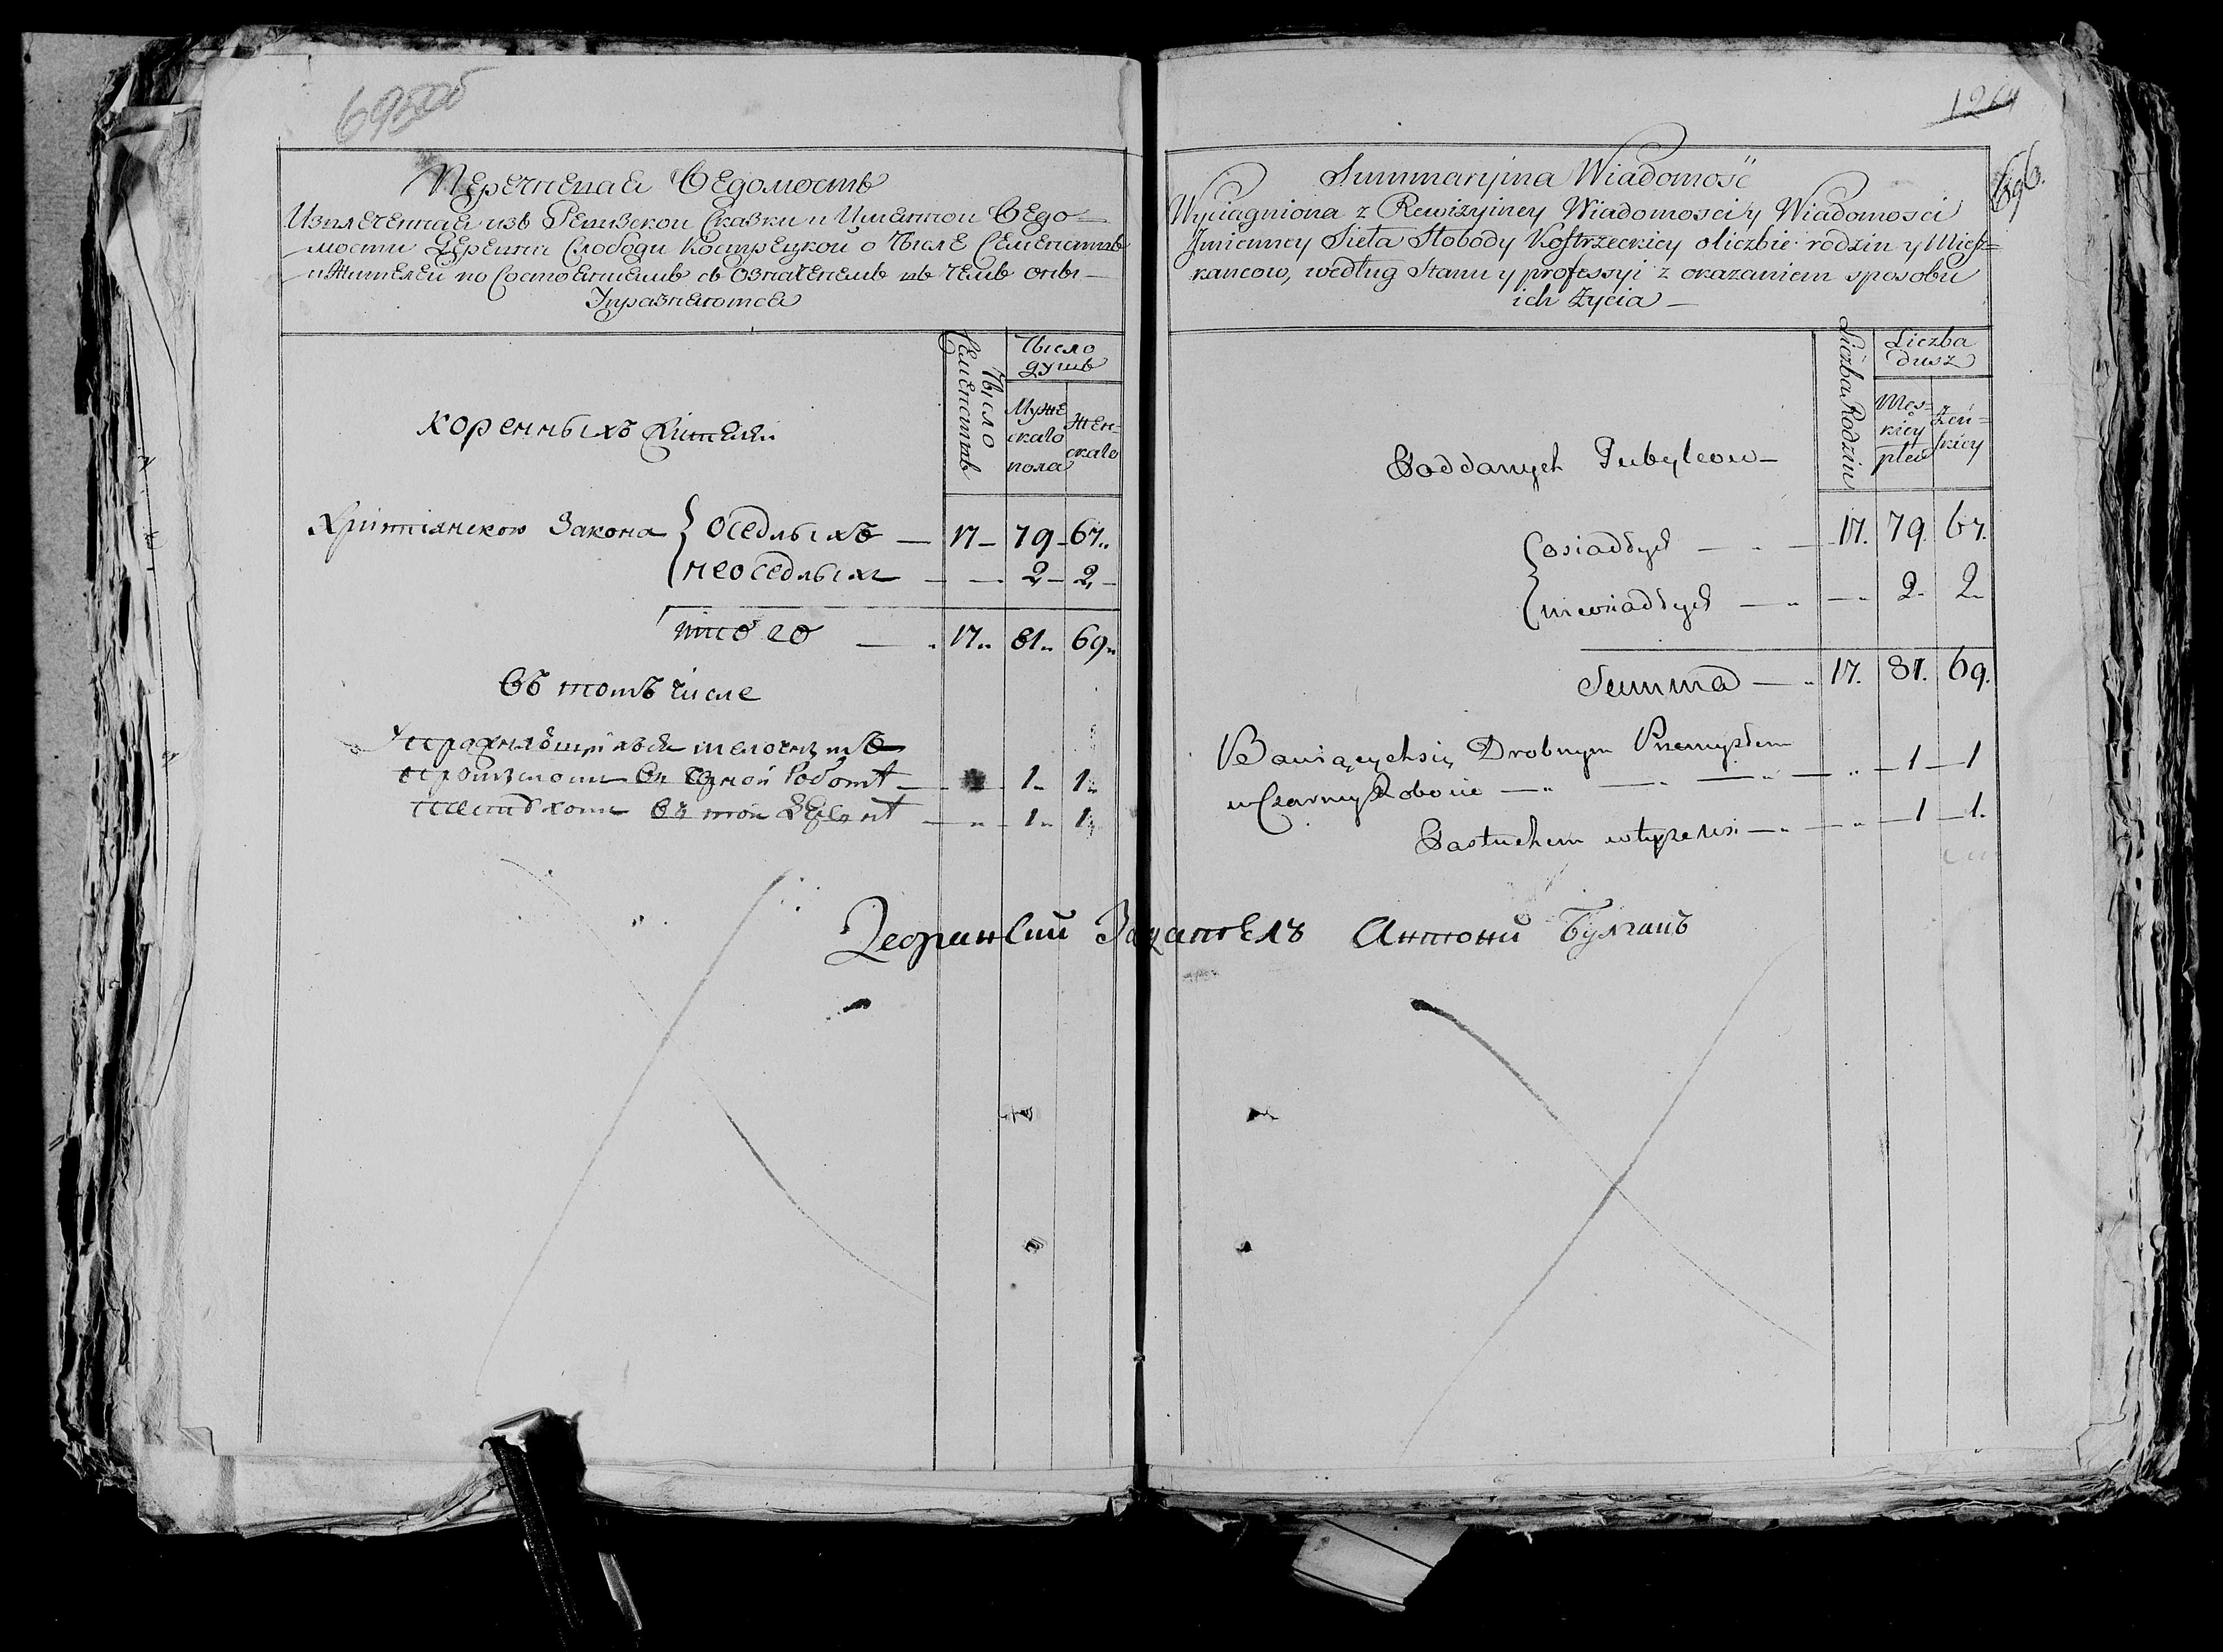 695об
Перечневая Ведомость
Извлеченная изъ Ревизской Сказки и Имянной Ведо=
мости Деревни Слободи Кострецкой о Числе Семействъ
и Жителей по Состоянiемъ съ Означенемъ въ чемъ оны
Упражняются
Число Семействъ
Число
душъ
Муже
скаго
пола
Жен=
скаго
коренныхъ жителей
Христiянского Закона { оседлыхъ — 17 — 79 — 67
неоседлыхъ — — 2 — 2 —
итого — 17 81 69
Въ томъ числе
мелочнымъ
промысломъ въ Чорной Работѣ — 1 1
пастухомъ въ той Деревнѣ — 1 1
1264
696.
Summaryina Wiadomość
Wyciągniona z Rewizyiney Wiadomości y Wiadomości
Jmienney Sieła Słobody Kostrzeckiey o liczbie rodzin y Miesz=
kancow, według Stanu y professyi z okazaniem sposobu
ich Życia —
Liczba Rodzin
Liczba
dusz
Męs=
kiey
płci
Żeń=
skiey
Poddanych Tubylcow —
osiadłych — 17. 79. 67.
nieosiadłych — — 2. 2.
Summa — 17. 81. 69.
Bawiących się Drobnym Przemysłem
w Czarney Robocie — 1 — 1
Pastuchem w tyże wsi — 1 — 1.
Антони Булгакъ